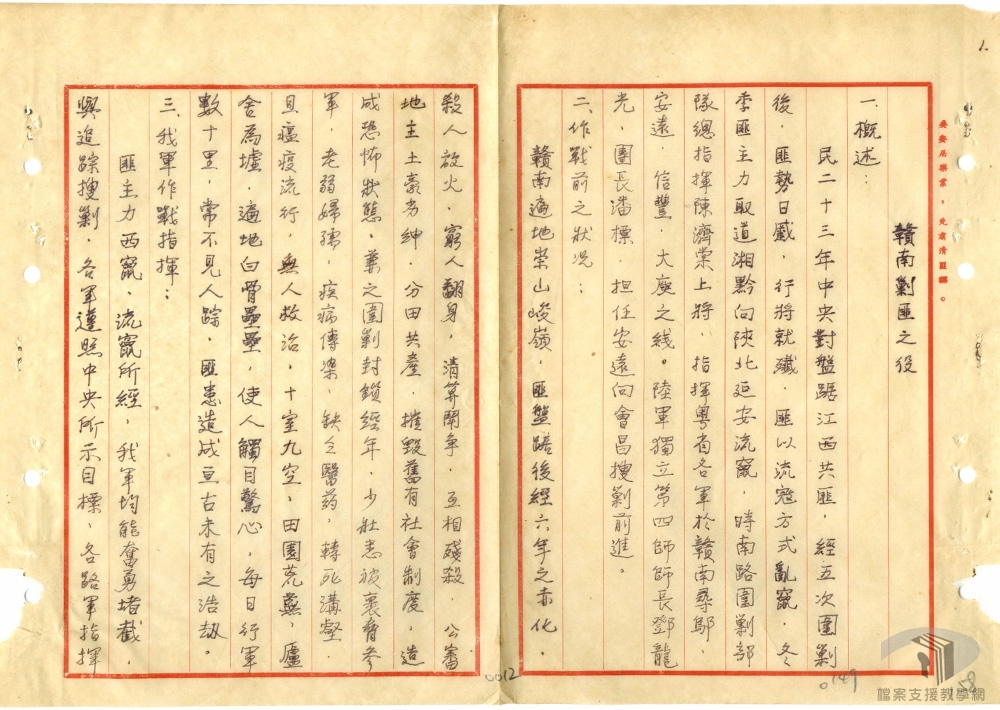 贛南剿匪之役
一、概述：
民二十三年中央對盤踞江西共匪，經五次圍剿
後，匪勢日蹙，行將就殲，匪以流寇方式亂竄，冬
季匪主力取道湘黔向陝北延安流竄，時南路圍剿部
隊總指揮陳濟棠上將，指揮粵省各軍於贛南尋鄔、
安遠、信豐、大庾之綫。陸軍獨立第四師師長鄧龍
光，團長潘標，担任安遠向會昌搜剿前進。
二、作戰前之狀况：
贛南遍地崇山峻嶺，匪盤踞後經六年之赤化，
殺人放火，窮人翻身，清算鬪爭，互相殘殺，公審
地主土豪劣紳，分田共產，摧毀舊有社會制度，造
成恐怖狀態。兼之圍剿封鎖經年，少壯悉被裹脅參
軍，老弱婦孺，疾病傳染，缺乏醫药，轉死溝壑，
且瘟疫流行，無人救治，十室九空，田園荒蕪，廬
舍為墟，遍地白骨壘壘，使人觸目驚心，每日行軍
數十里，常不見人踪，匪患造成亘古未有之浩劫。
三、我軍作戰指揮：
匪主力西竄，流竄所經，我軍均能奮勇堵截，
與追踪搜剿，各軍遵照中央所示目標，各路軍指揮
0012
0149
158
1.
檔案支援教學網